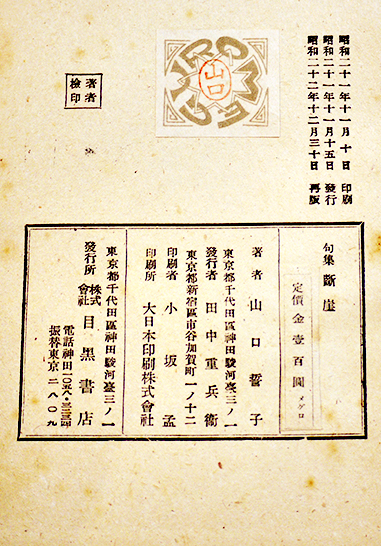 昭和二十一年十一月十日 印刷
昭和二十一年十一月十五日 發行
昭和二十二年十二月三十日 再版
山口
著者
檢印
句集 斷崖
定價金壹百圓
メグロ
著者 山口誓子
東京都千代田區神田駿河臺三ノ一
發行者 田中重兵衞
東京都新宿區市谷加賀町一ノ十二
印刷者 小坂孟
印刷所 大日本印刷株式會社
東京都千代田區神田駿河臺三ノ一
發行所 株式會社 目黑書店
振替東京二八〇九